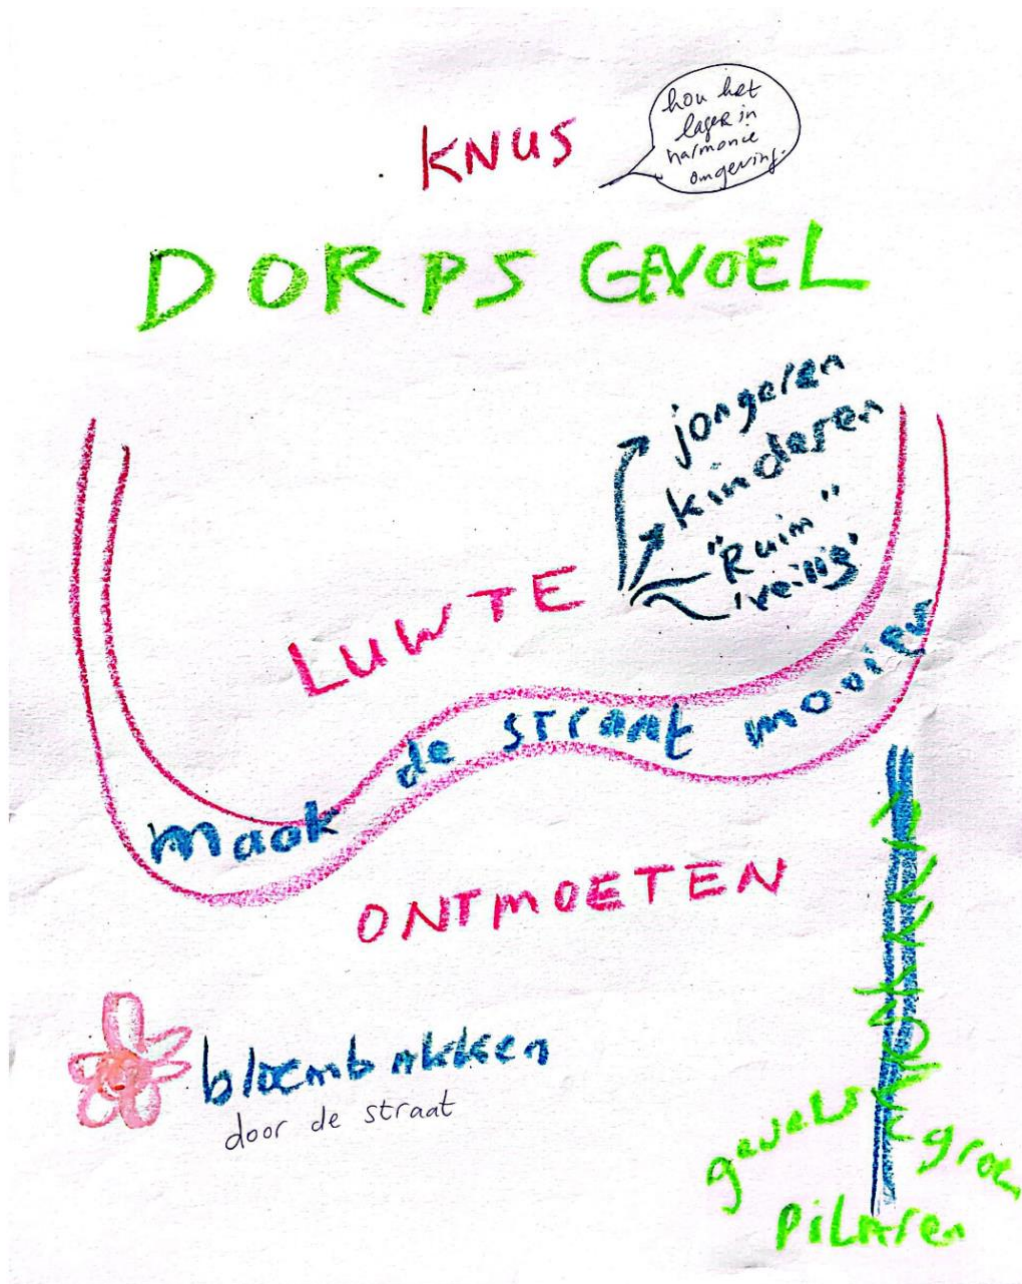 KNUS
hou het
lager in
harmonie
omgeving.
DORPS GEVOEL
jongeren
kinderen
"Ruim"
'veilig'
LUWTE
maak de straat mooier
ONTMOETEN
bloembakken
door de straat
gevels groen
pilaren